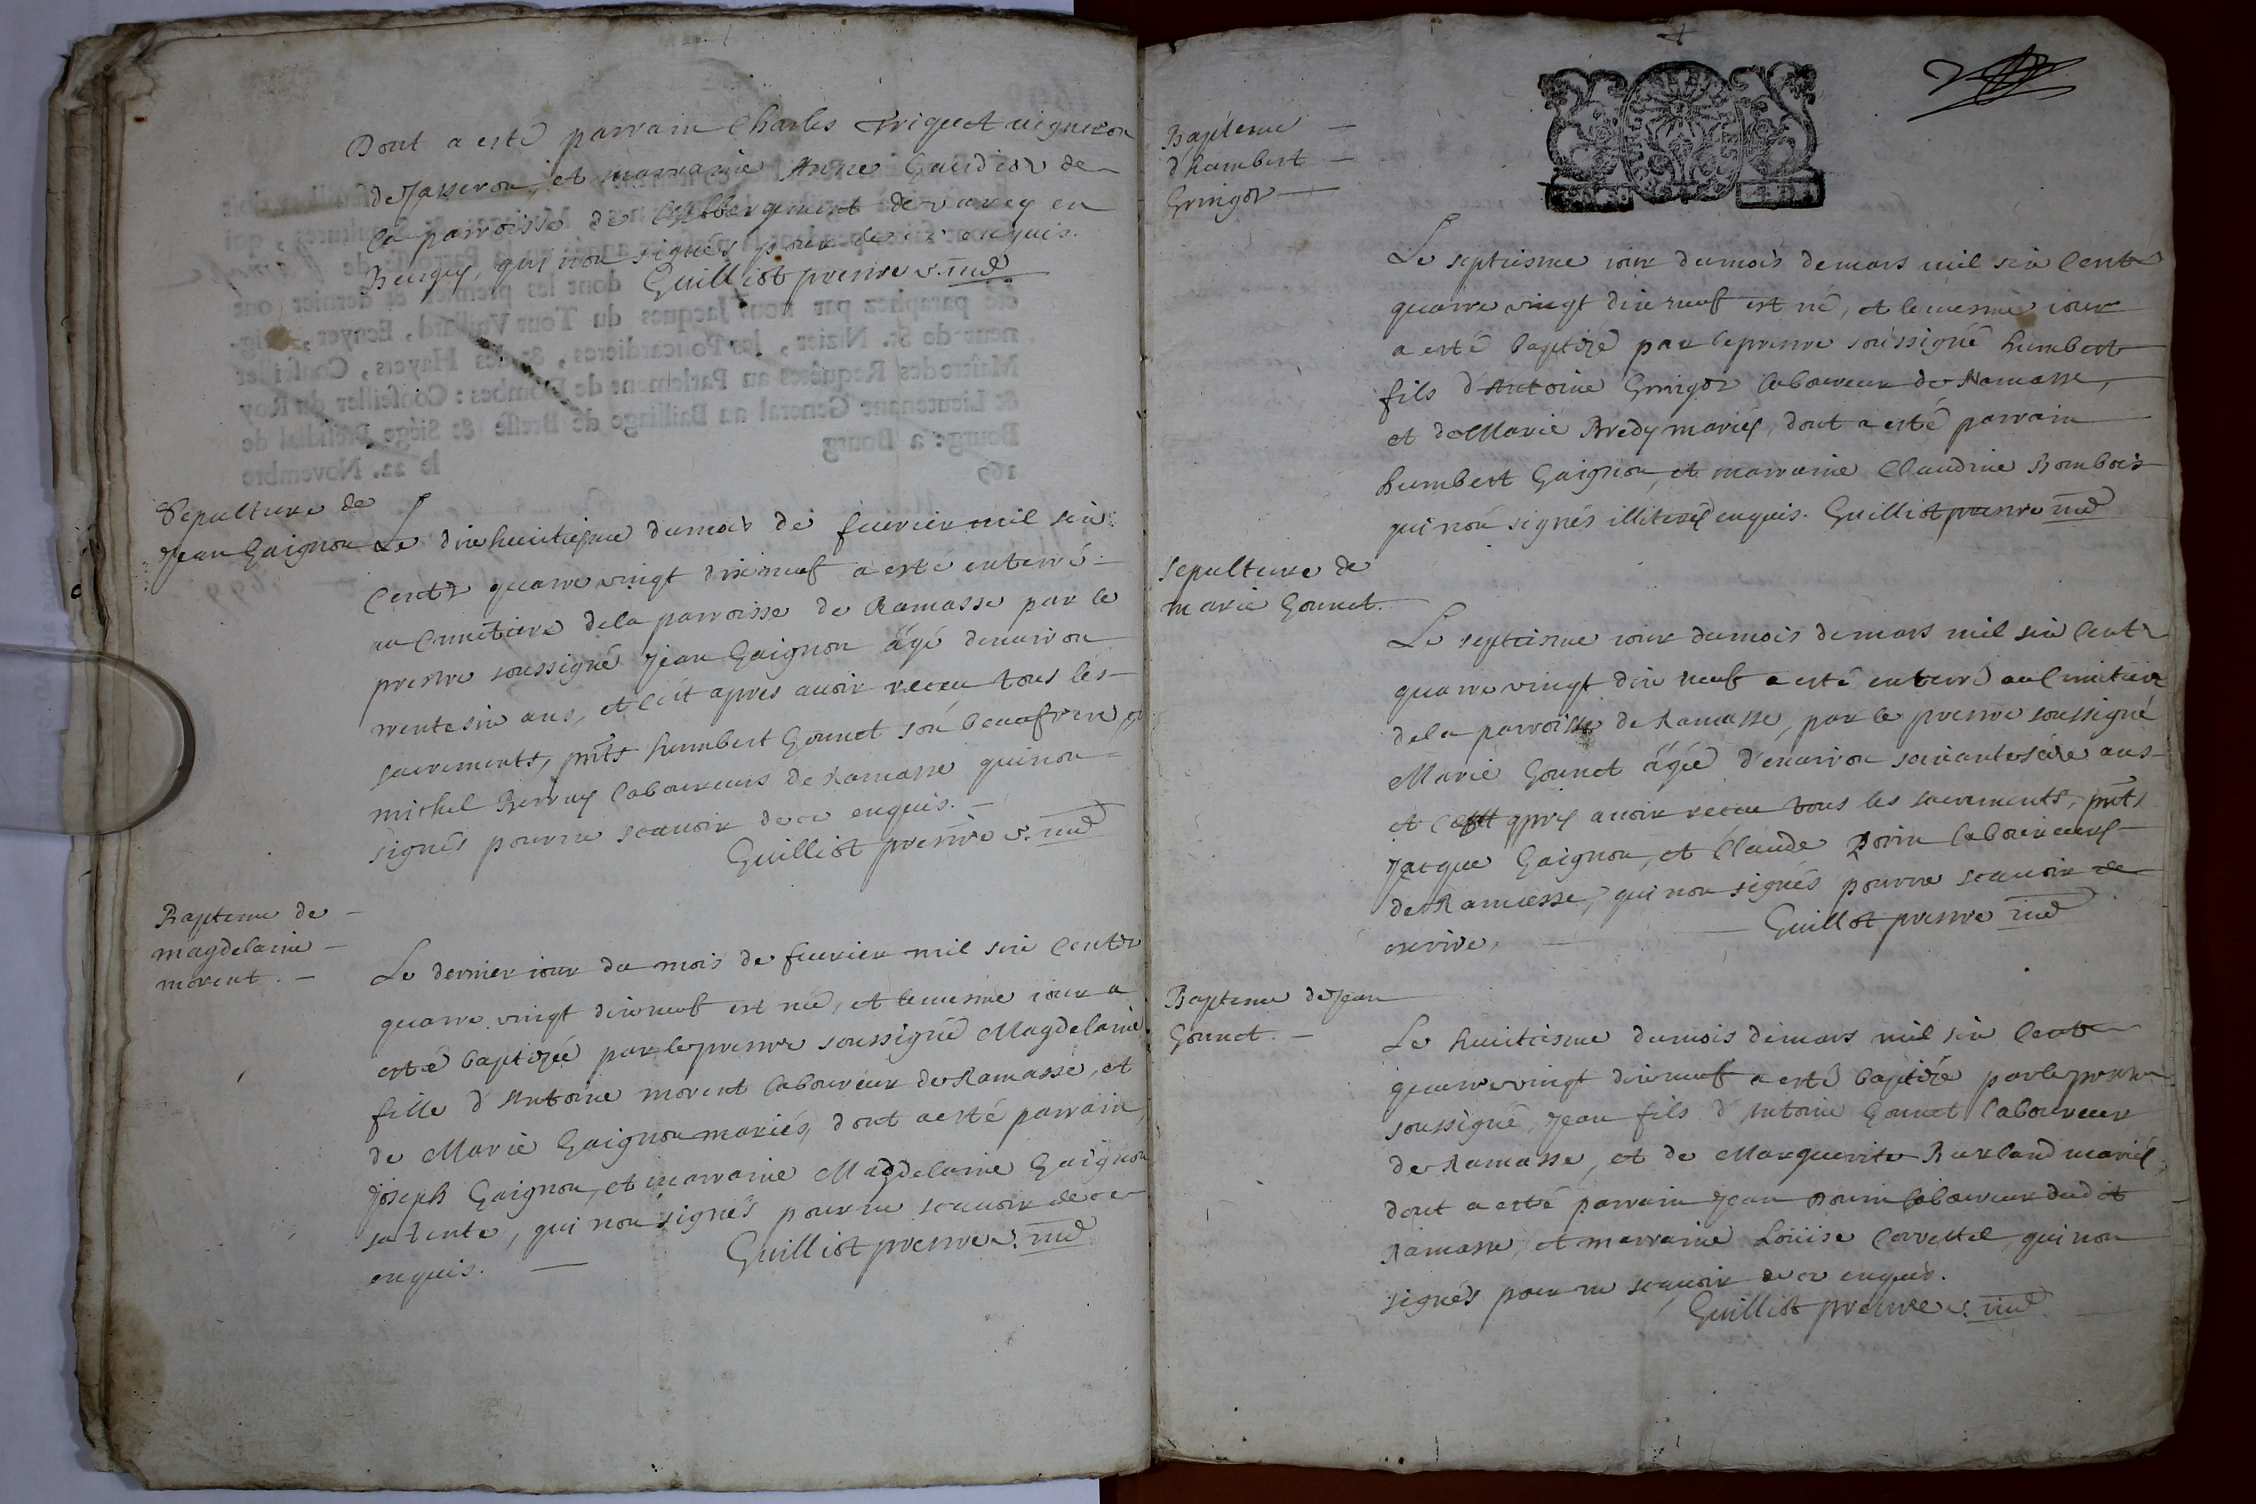 Dont a esté parrain Charles Triquet vigneron
de Jasseron, et marraine Anne Gaudior de
la parroisse de L'abbergement de varey en
Beugey, qui non signés pour de ce enquis.
Guilliot prestre v. ind
Sepulture de
Jean Gaignon
Le dixhuitiesme du mois de feurier mil six
Centz quatre vingt dix neuf a esté enterré
au Cimetiere de la parroisse de Ramasse par le
prestre soussigné Jean Gaignon âgé denuiron
trente six ans, et c'êt apres auoir receu tous les
sacrements, pnts humbert Gonnet son beaufrere, et
michel Berruy laboureurs de Ramasse qui non
signés pour ne scauoir de ce enquis.
Guilliot prestre v. ind
Baptesme de
magdelaine
morent.
Le dernier iour du mois de feurier mil six Centz
quatre vingt dix neuf est née, et le mesme iour a
esté baptizée par le prestre soussigné Magdelaine
fille d'Antoine morent laboureur de Ramasse, et
de Marie Gaignon mariés, dont a esté parrain
Joseph Gaignon, et marraine Magdelaine Gaignon
sa tente, qui non signés pour ne scauoir de ce
enquis.
Guilliot prestre v. ind
Baptesme
d'humbert
Gringoz
Le septiesme iour du mois de mars mil six Centz
quatre vingt dix neuf est né, et le mesme iour
a esté baptizé par le prestre soussigné humbert
fils d'Antoine Gringoz laboureur de Ramasse,
et de Marie Bredy mariés, dont a esté parrain
humbert Gaignon, et marraine Claudine Bombois
qui non signés illiterés enquis. Guilliot prestre ind
Sepulture de
marie Gonnet.
Le septiesme iour du mois de mars mil six Centz
quatre vingt dix neuf a esté enterré au Cimitiere
de la parroisse de Ramasse, par le prestre soussigné
Marie Gonnet âgée d'enuiron soixante séze ans
et c'est aprés auoir receu tous les sacrements, pnts
Jacque Gaignon, et Claude Borin laboureurs
de Ramasse, qui non signés pour ne scauoir
escrire.
Guilliot prestre ind
Baptesme de Jean
Gonnet.
Le huitiesme du mois de mars mil six Centz
quatre vingt dix neuf a esté baptizé par le prestre
soussigné, Jean fils d'Antoine Gonnet laboureur
de Ramasse, et de Marguerite Burland mariés,
dont a esté parrain Jean Borin laboureur dudit
Ramasse, et marraine Loüise Correttel, qui non
signés pour ne scauoir de ce enquis.
Guilliot prestre v. ind